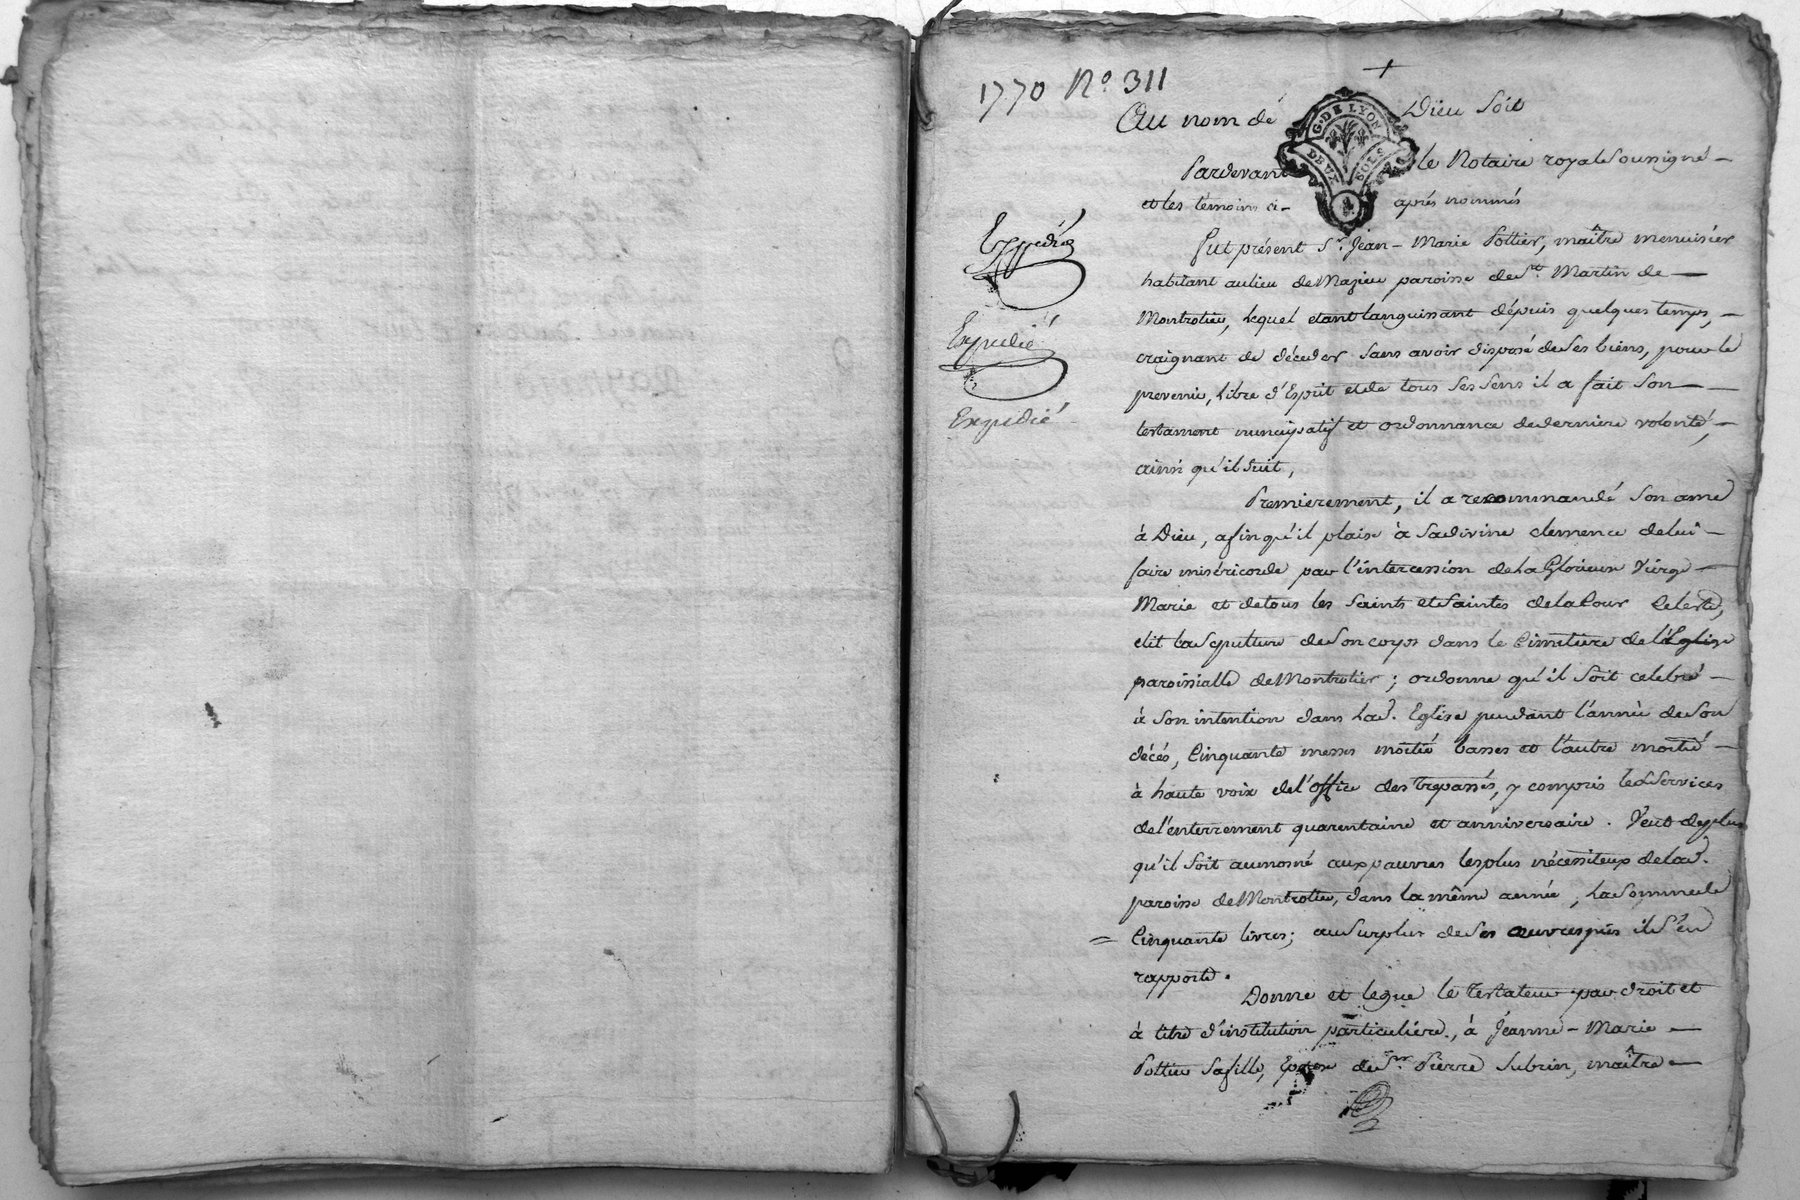 1770 N.º 311
+
Au nom de Dieu soit
G. DE LYON
DEUX SOLS
Pardevant le Notaire royal soussigné –
et les témoins ci- après nommés
Expédié
Expedié
Expedié
fut présent S.r Jean-Marie Pottier, maître menuisier
habitant au lieu de Mazieu paroisse de S.t Martin de —
Montrotier, lequel etant languissant dépuis quelques temps, –
craignant de décéder sans avoir disposé de ses biens, pour le
prevenir, libre d'Esprit et de tous ses sens il a fait son —
testament nuncupatif et ordonnance de derniere volonté, –
ainsi qu'il suit,
Premierement, il a recommandé son ame
à Dieu, afin qu'il plaise à sa divine clemence de lui –
faire miséricorde par l'intercession de la Glorieuse Vierge —
Marie et de tous les Saints et Saintes de la Cour Celeste,
elit la sepulture de son corps dans le Cimetiere de l'Eglise
paroissialle de Montrotier ; ordonne qu'il soit celebré –
à son intention dans lad. Eglise pendant l'année de son
décés, Cinquante messes moitié basses et l'autre moitié –
à haute voix de l'office des Trepassés, y compris les services
de l'enterrement quarentaine et anniversaire . Veut de plus
qu'il soit aumosné aux pauvres les plus nécessiteux de lad.
paroisse de Montrotier, dans la même année, la somme de
= Cinquante livres ; au surplus de ses œuvres pies il s'en
rapporte.
Donne et legue le Testateur par droit et
à titre d'institution particuliére, à Jeanne-Marie –
Pottier sa fille, Epouse de S.r Pierre Subrin, maître –